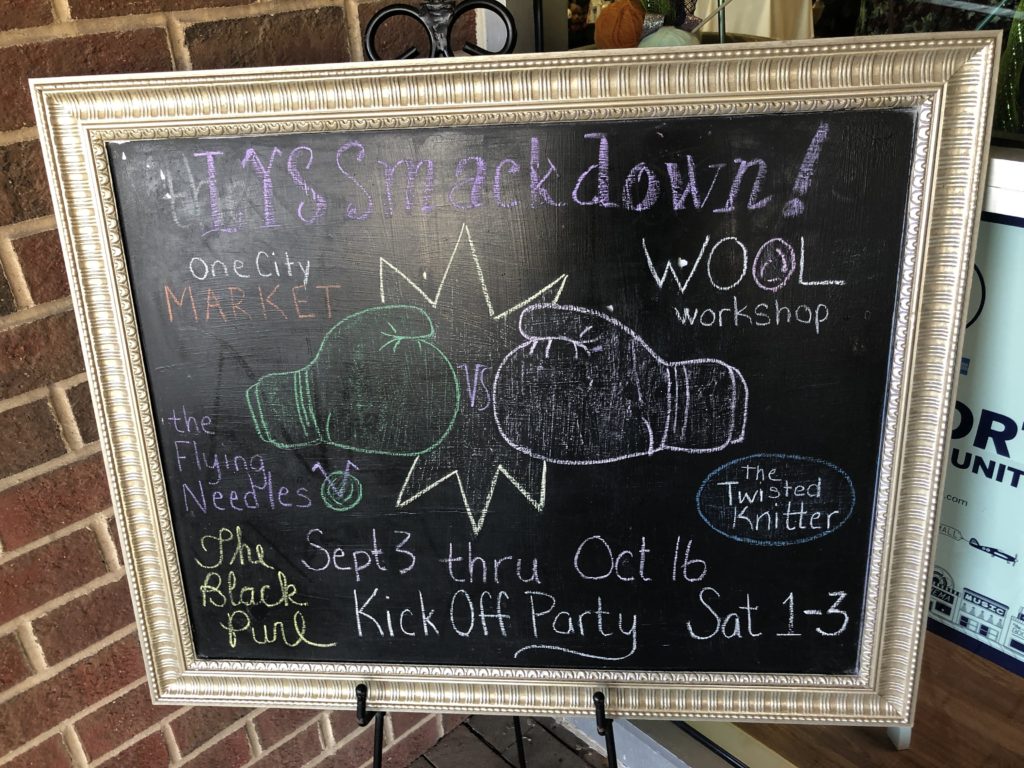 LYS Smackdown!
one City
MARKET
WOOL
workshop
VS
the
Flying
Needles
The
Twisted
Knitter
The
Black
Purl
Sept 3 thru Oct 16
Kick Off Party Sat 1-3
OR
UNIT
.com
MUSIC